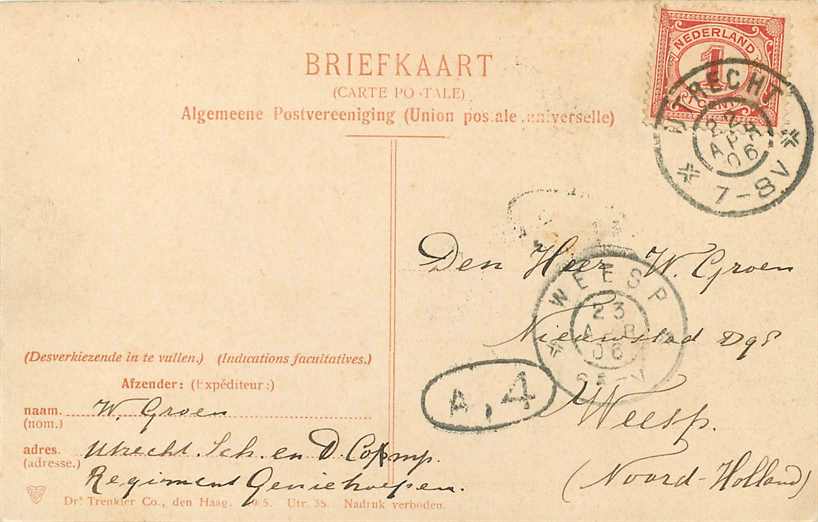 BRIEFKAART
(CARTE PO TALE)
Algemeene Postvereeniging (Union pos ale universelle)
NEDERLAND
1
CENT
UTRECHT
APR
06
7-8V
Den Heer W. Groen
Nieuwstad
Weesp.
(Noord-Holland)
WEESP
23
APR
06
A, 4
(Desverkiezende in te vullen.) (Indications facultatives.)
Afzender: (Expéditeur:)
naam. W. Groen
(nom.)
adres. Utrecht. Sch. en D. Comp.
(adresse.) Regiment Genietroepen.
Drs Trenkler Co., den Haag. 1905. Utr. 35. Nadruk verboden.